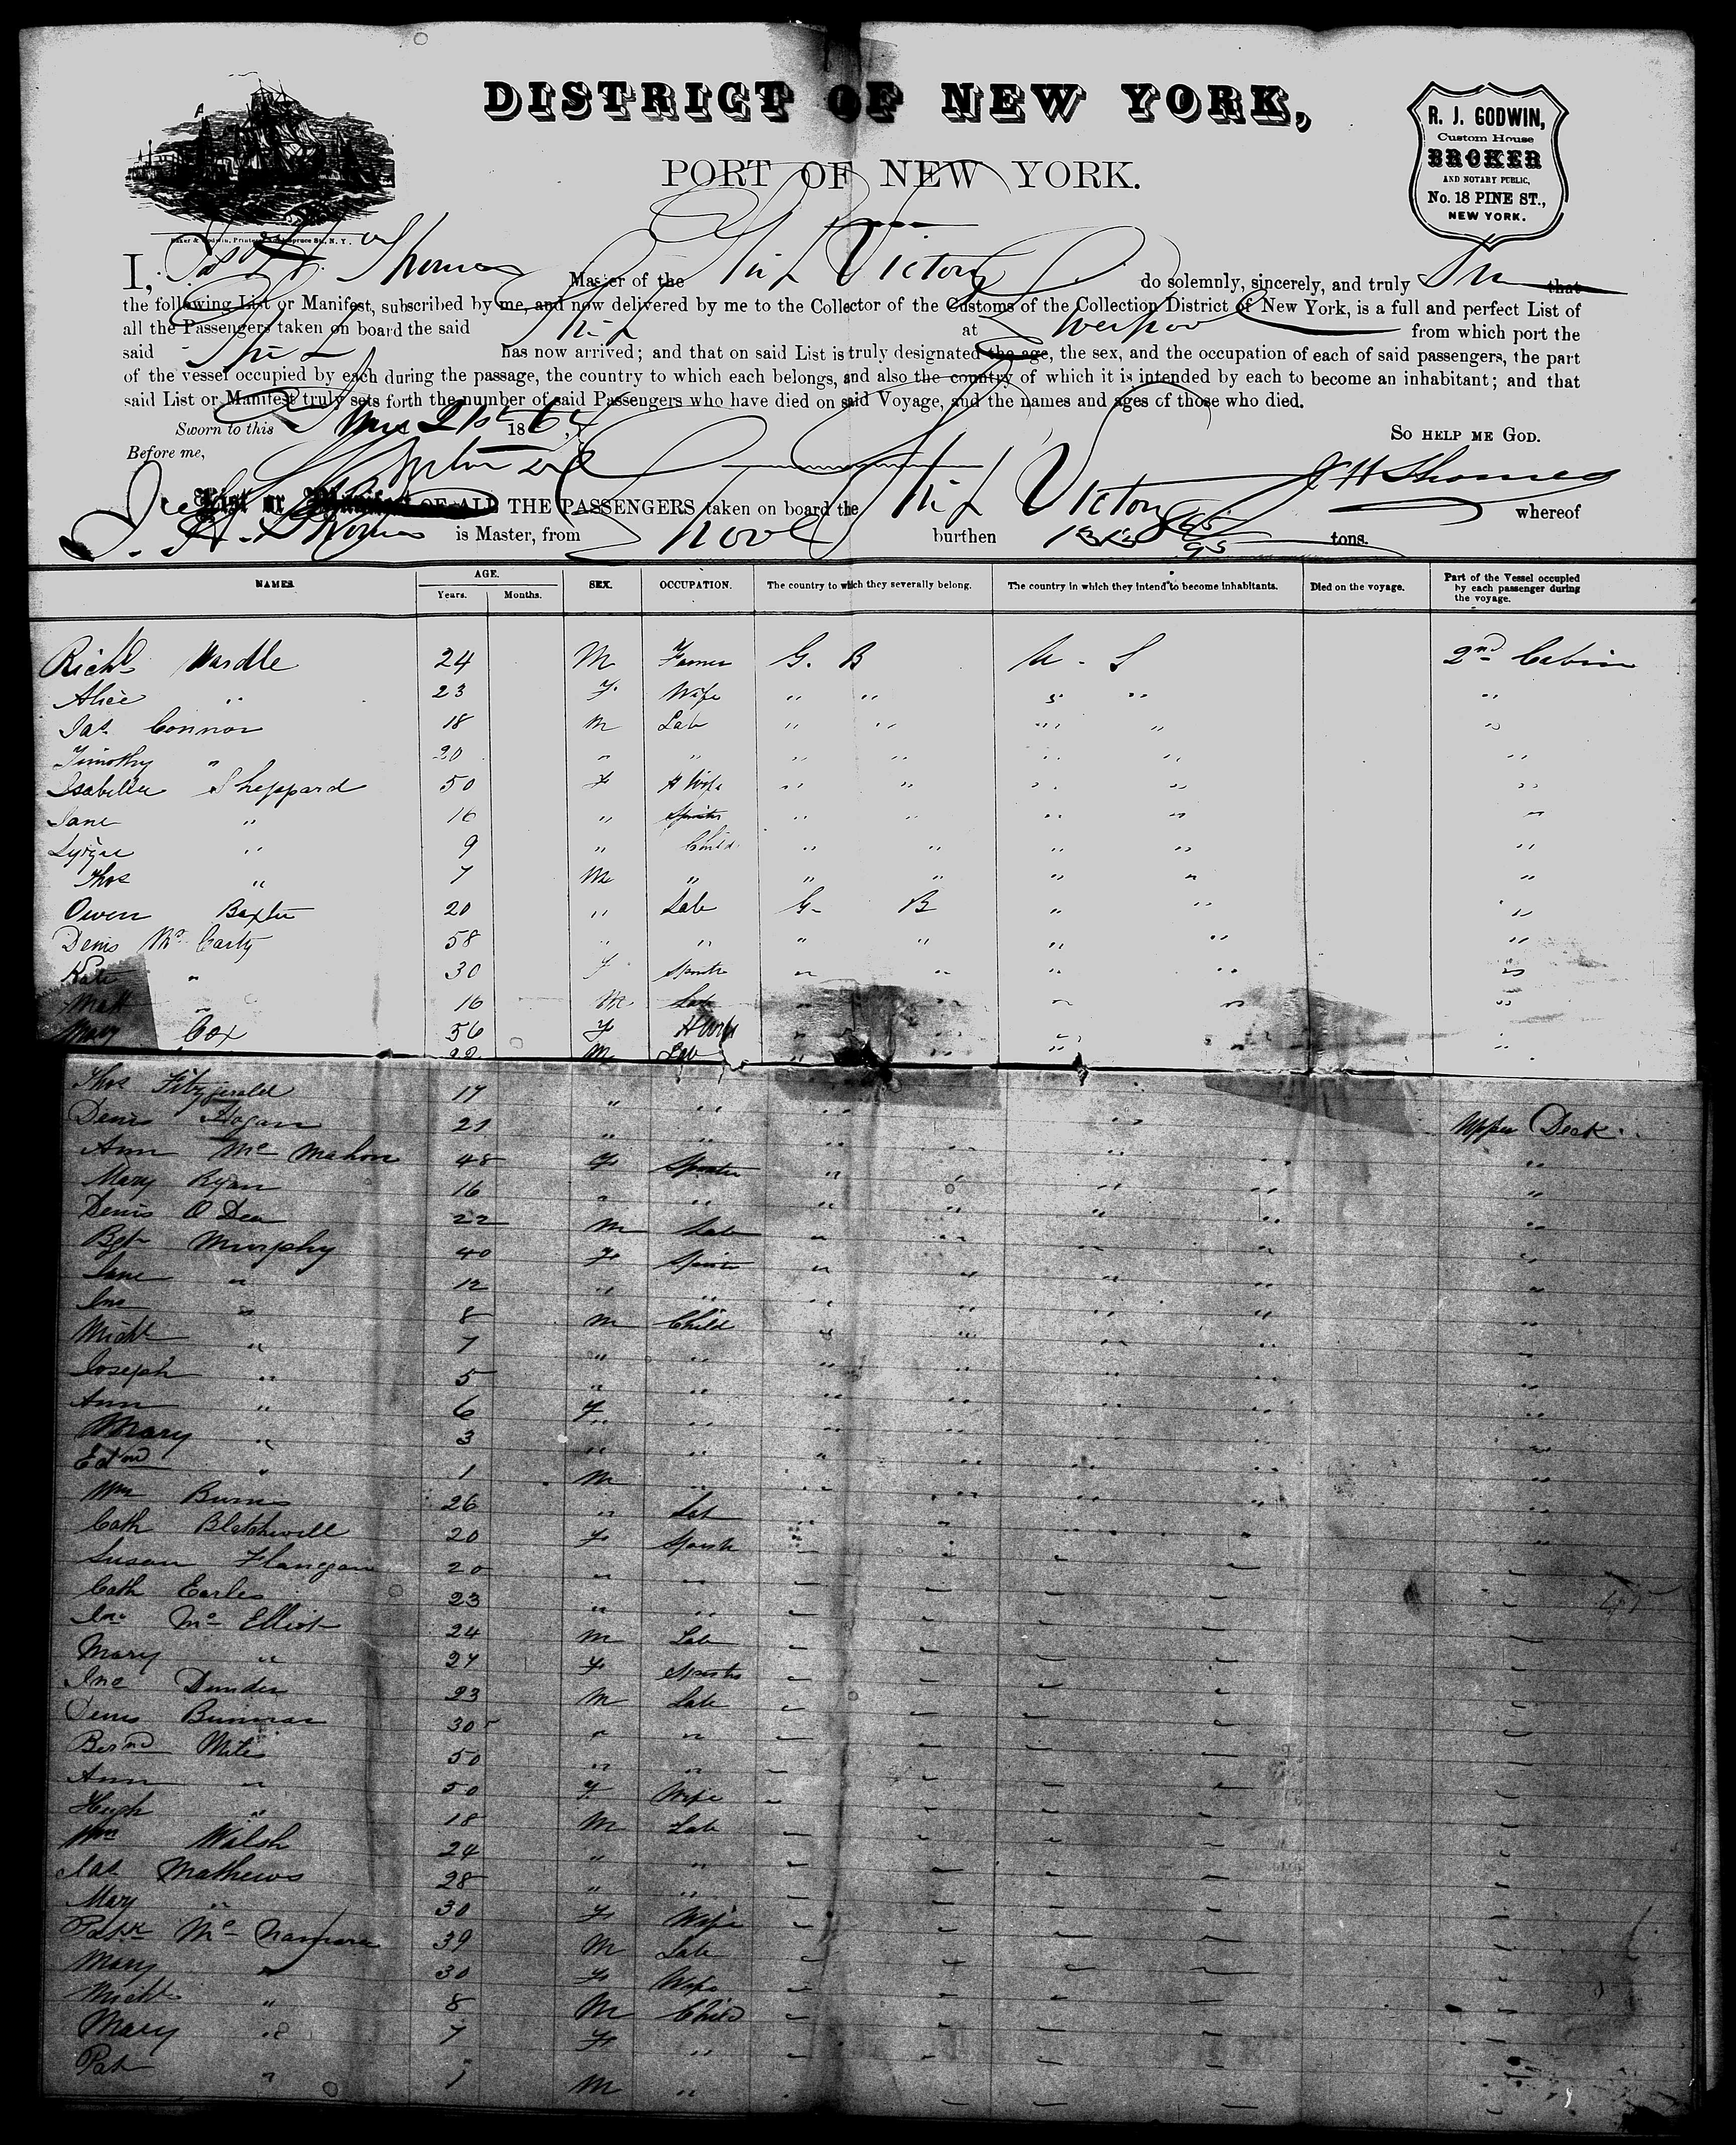 DISTRICT OF NEW YORK,
PORT OF NEW YORK.
R. J. GODWIN,
Custom House
BROKER
AND NOTARY PUBLIC,
No. 18 PINE ST.,
NEW YORK.
Baker & Godwin, Printers, Spruce St., N. Y.
I, Thomas Master of the Ship Victory do solemnly, sincerely, and truly that
the following List or Manifest, subscribed by me, and now delivered by me to the Collector of the Customs of the Collection District of New York, is a full and perfect List of
all the Passengers taken on board the said Ship at Liverpool from which port the
said Ship has now arrived; and that on said List is truly designated the age, the sex, and the occupation of each of said passengers, the part
of the vessel occupied by each during the passage, the country to which each belongs, and also the country of which it is intended by each to become an inhabitant; and that
said List or Manifest truly sets forth the number of said Passengers who have died on said Voyage, and the names and ages of those who died.
Sworn to this 21st 1864, SO HELP ME GOD.
Before me, J H Thomas
List or Manifest OF ALL THE PASSENGERS taken on board the Ship Victory whereof
J. H. Thomas is Master, from L'pool burthen tons.
NAMES. AGE. SEX. OCCUPATION. The country to which they severally belong. The country in which they intend to become inhabitants. Died on the voyage. Part of the Vessel occupied by each passenger during the voyage.
Years. Months.
Richd Wardle 24 M Farmer G. B U. S 2nd Cabin
Alice " 23 F. Wife " " " " "
Jas Connor 18 M Lab " " " " "
Timothy " 20 " " " " " " "
Isabella Sheppard 50 F H Wife " " " " "
Jane " 16 " Spinster " " " " "
" 9 " Child " " " " "
Thos " 7 M " " " " " "
Owen Baxter 20 " Lab G. B " " "
Denis Mc Carty 58 " " " " " " "
Kate " 30 F Spinster " " " " "
Matt " 16 M Lab " " " " "
Mary Cox 56 F H Wife " " " " "
22 M Lab " " " "
Thos Fitzgerald 17 " " "
Denis Hogan 21 " " " " Upper Deck
Ann Mc Mahon 48 F Spinster " " " " "
Mary Ryan 16 " " " " " " "
Denis O Dea 22 M Lab " " " " "
Bgt Murphy 40 F Spinster " " " " "
Jane " 12 " " " " " " "
Jno " 8 M Child " " " " "
Michl " 7 " " " " " " "
Joseph " 5 " " " " " " "
Ann " 6 F " " " " " "
Mary " 3 " " " " " " "
Edmd " 1 M " " " " " "
Wm Burns 26 " Lab " " " " "
Cath Blatchwell 20 F Spinster " " " " "
Susan Flanegan 20 " "
Cath Earles 23 " "
Jno Mc Elliot 24 M Lab
Mary " 24 F Spinster
Jno Dunden 23 M Lab
Denis 30 " "
Bernd Miles 50 " "
Ann " 50 F. Wife
Hugh " 18 M Lab
Wm Walsh 24 " "
Jas Mathews 28 " "
Mary " 30 F Wife
Patk Mc Namara 39 M Lab
Mary " 30 F Wife
Michl " 8 M Child
Mary " 7 F "
Pat " 1 M "